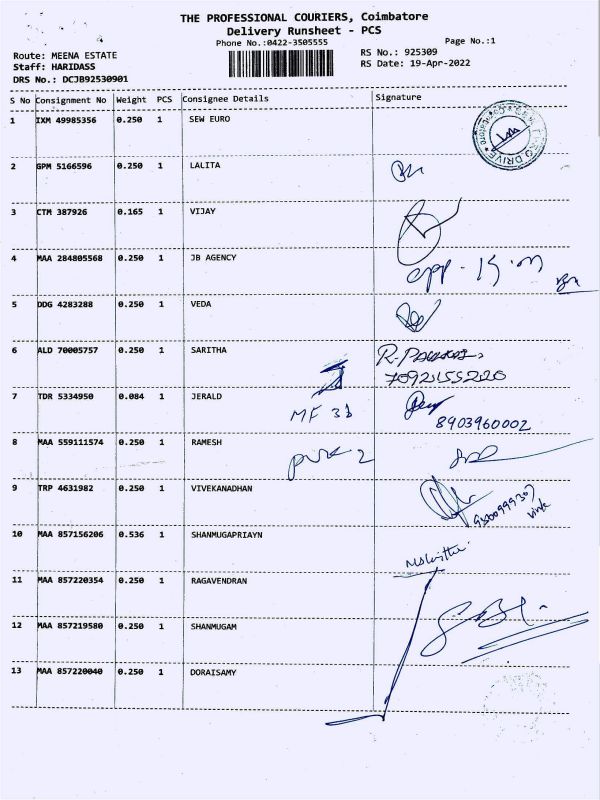 THE PROFESSIONAL COURIERS, Coimbatore
Delivery Runsheet - PCS
Phone No.:0422-3505555
Page No.:1
Route: MEENA ESTATE
Staff: HARIDASS
DRS No.: DCJB92530901
RS No.: 925309
RS Date: 19-Apr-2022
S No Consignment No Weight PCS Consignee Details Signature
1 IXM 49985356 0.250 1 SEW EURO
2 GPM 5166596 0.250 1 LALITA
3 CTM 387926 0.165 1 VIJAY
4 MAA 284805568 0.250 1 JB AGENCY
5 DDG 4283288 0.250 1 VEDA
6 ALD 70005757 0.250 1 SARITHA
7092155220
7 TDR 5334950 0.084 1 JERALD
MF 3b
8903960002
8 MAA 559111574 0.250 1 RAMESH
9 TRP 4631982 0.250 1 VIVEKANADHAN
10 MAA 857156206 0.536 1 SHANMUGAPRIAYN
11 MAA 857220354 0.250 1 RAGAVENDRAN
12 MAA 857219580 0.250 1 SHANMUGAM
13 MAA 857220040 0.250 1 DORAISAMY